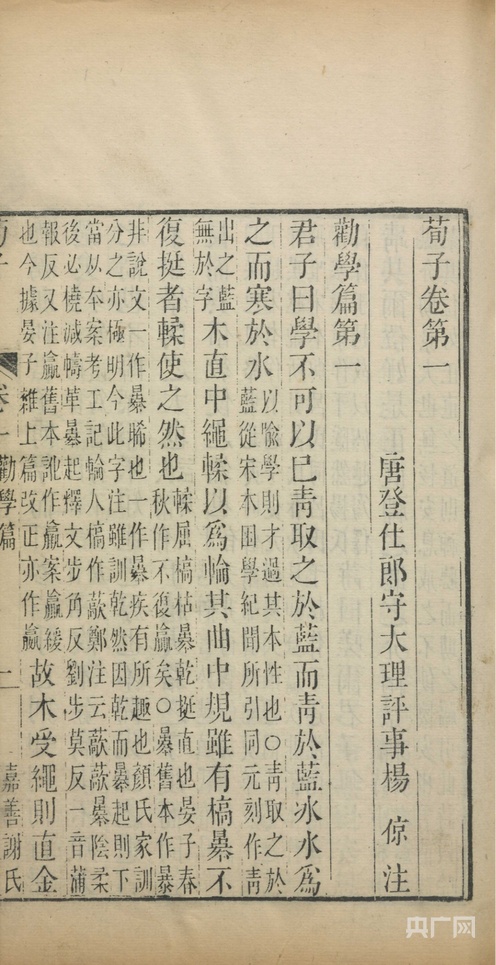 荀子卷第一
唐登仕郎守大理評事楊倞注
勸學篇第一
君子曰學不可以巳青取之於藍而青於藍冰水爲
之而寒於水以喻學則才過其本性也○青取之於
藍從宋本困學紀聞所引同元刻作青
出之藍
無於字
木直中繩輮以爲輪其曲中規雖有槁暴不
復挺者輮使之然也輮屈槁枯暴乾挺直也晏子春
秋作不復贏矣○暴舊本作暴
幷說文一作暴晞也一作暴疾有所趣也顏氏家訓
分之亦極明今此字注雖訓乾然因乾而暴起則下
當从本案考工記輪人槁作藃鄭注云藃藃暴陰柔
後必橈減幬革暴起釋文步角反劉步莫反一音蒲
報反又注贏舊本訛作羸案羸緩
也今據晏子雜上篇改正亦作嬴
故木受繩則直金
荀子
卷一勸學篇
二
嘉善謝氏
央广网